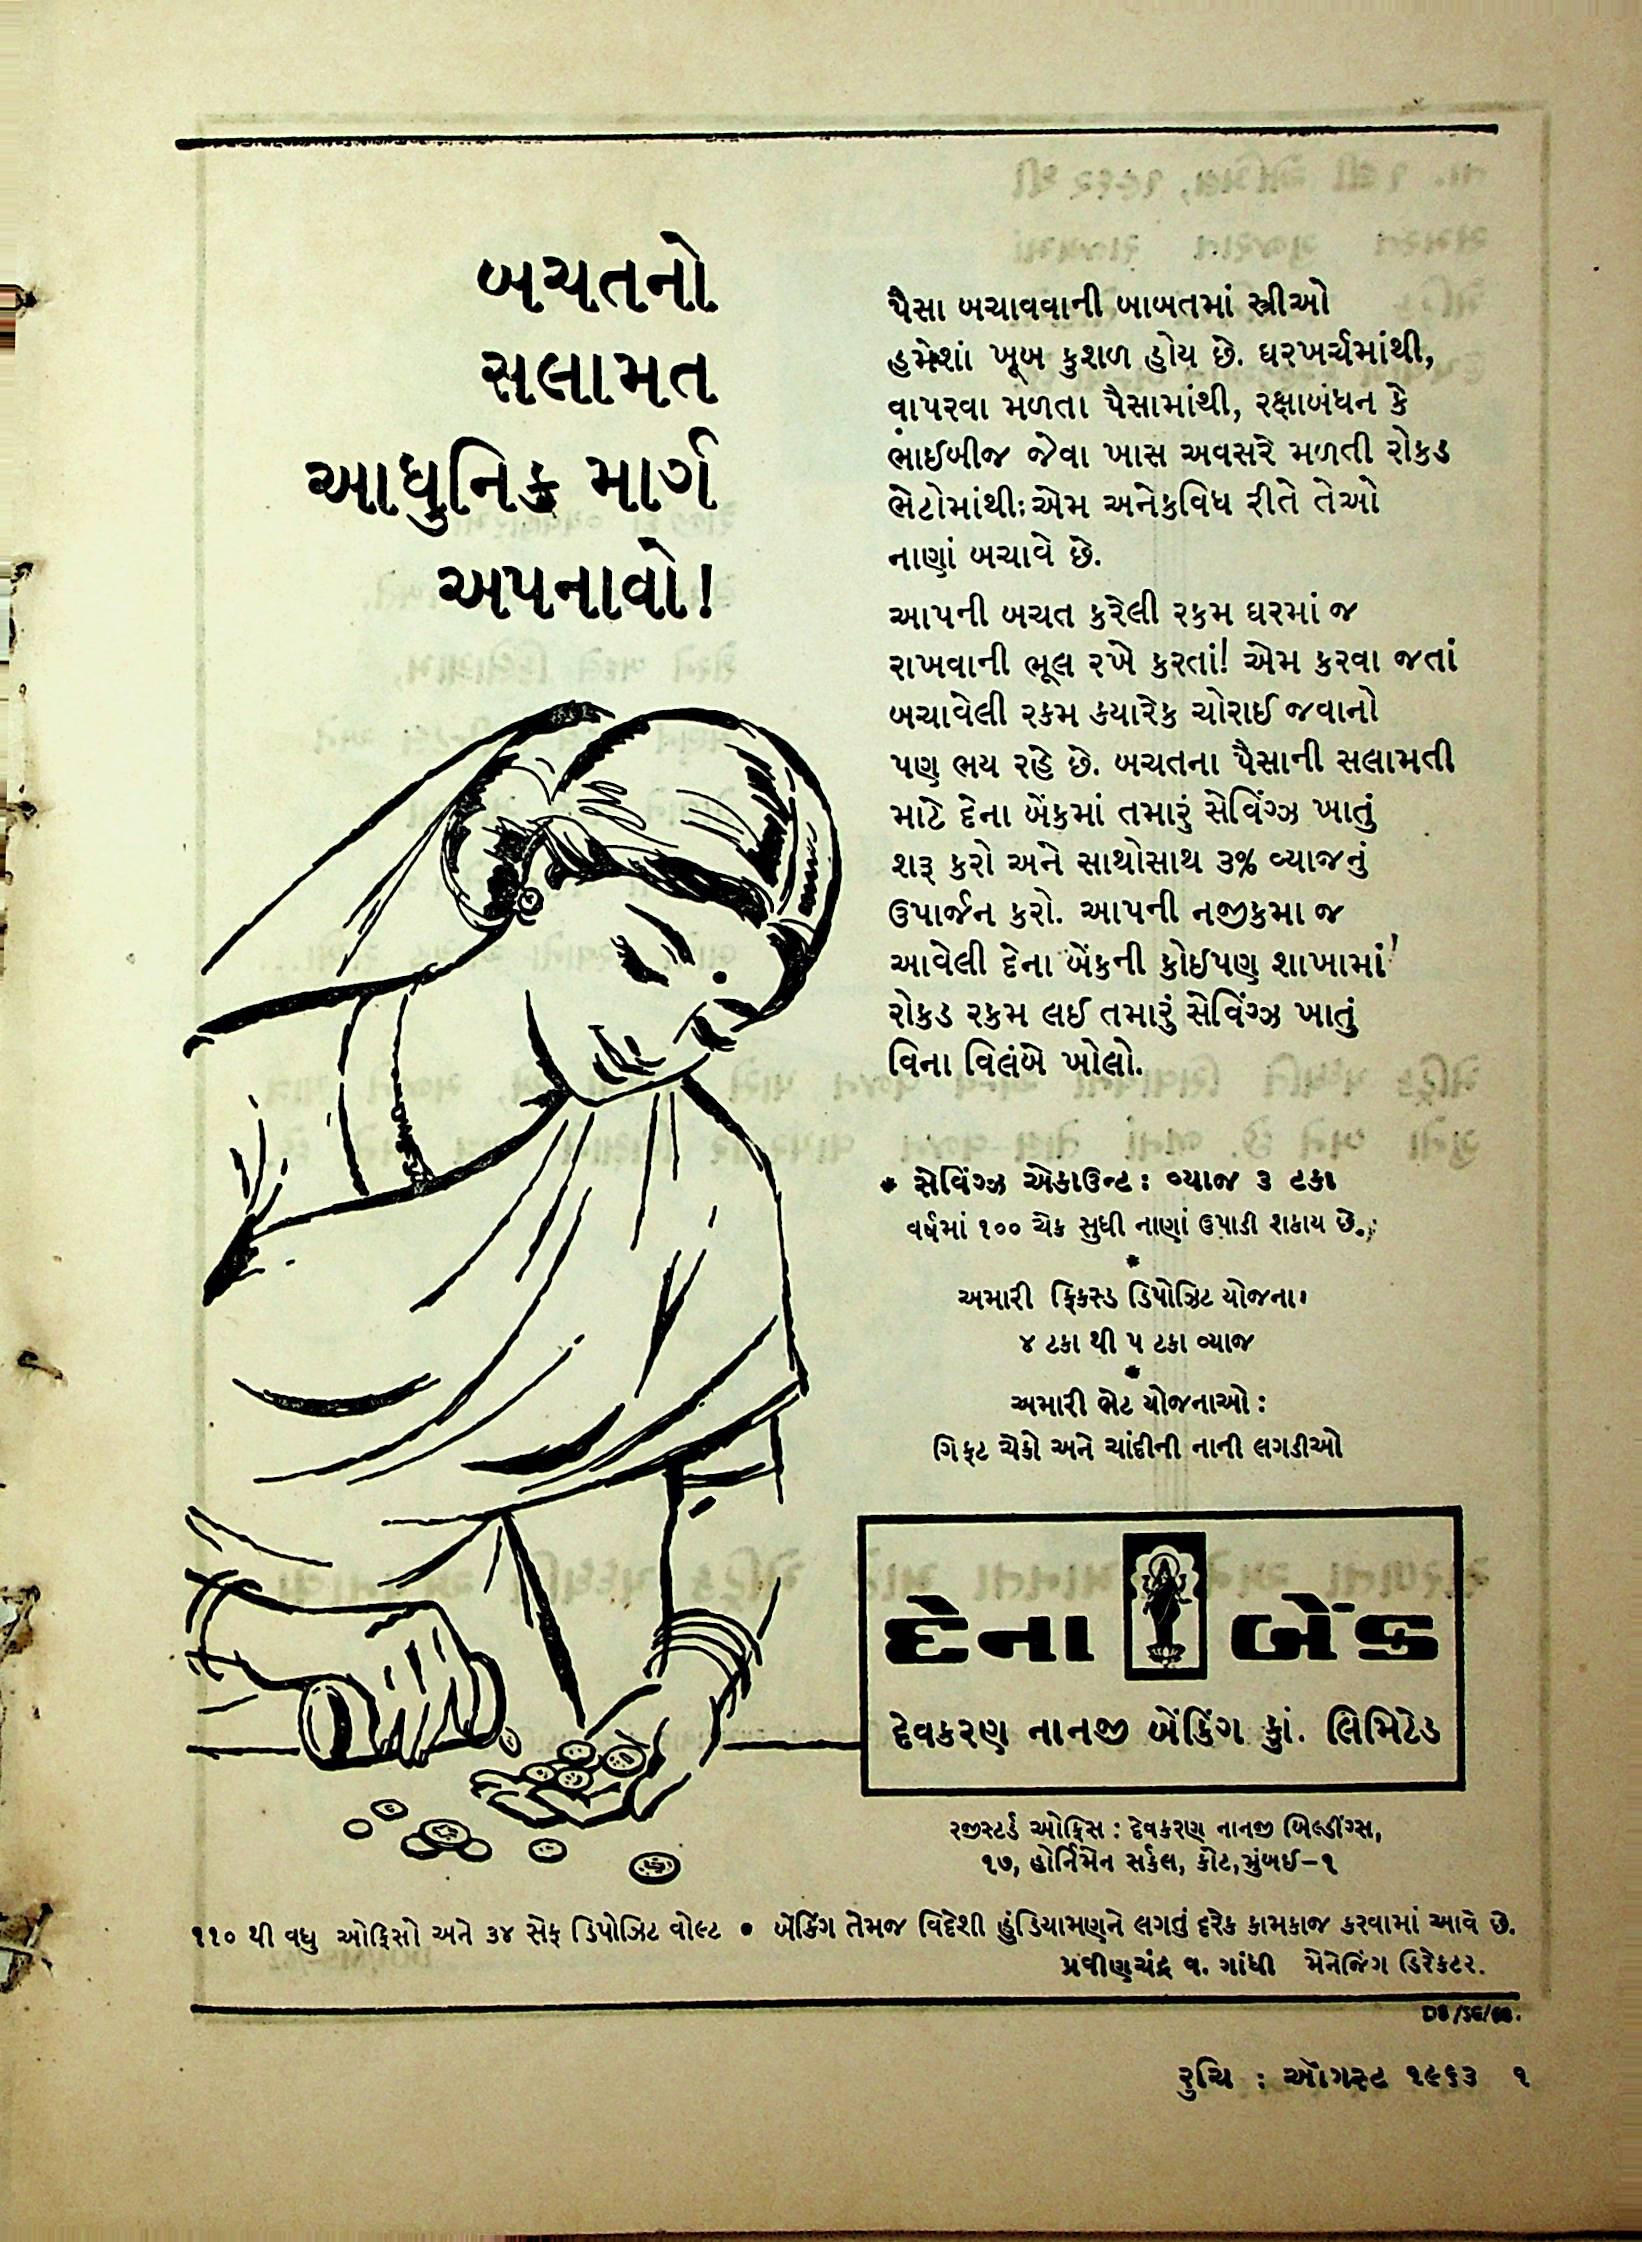 બચતનો
સલામત
આધુનિક માર્ગ
અપનાવો!
પૈસા બચાવવાની બાબતમાં સ્ત્રીઓ
હમેશાં ખૂબ કુશળ હોય છે. ઘરખર્ચમાંથી,
વાપરવા મળતા પૈસામાંથી, રક્ષાબંધન કે
ભાંઈબીજ જેવા ખાસ અવસરે મળતી રોકડ
ભેટોમાંથી: એમ અનેકવિધ રીતે તેઓ
નાણાં બચાવે છે.
આપની બચત કરેલી રકમ ઘરમાં જ
રાખવાની ભૂલ રખે કરતાં! એમ કરવા જતાં
બચાવેલી રકમ કયારેક ચોરાઈ જવાનો
પણ ભય રહે છે. બચતના પૈસાની સલામતી
માટે દેના બેંકમાં તમારું સેવિંગ્ઝ ખાતું
શરૂ કરો અને સાથોસાથ ૩% વ્યાજનું
ઉપાર્જન કરો. આપની નજીકમા જ
આવેલી દેના બેંકની કોઈપણ શાખામાં
રોકડ રકમ લઈ તમારું સેવિંગ્ઝ ખાતું
વિના વિલંબે ખોલો.
* સેવિંગ્ઝ એકાઉન્ટ : વ્યાજ ૩ ટકા
વર્ષમાં ૧૦૦ ચેક સુધી નાણાં ઉપાડી શકાય છે.
*
અમારી ફિકસ્ડ ડિપોઝિટ યોજના:
૪ ટકા થી ૫ ટકા વ્યાજ
*
અમારી ભેટ યોજનાઓ :
ગિફ્ટ ચેકો અને ચાંદીની નાની લગડીઓ
દેના બેંક
દેવકરણ નાનજી બેંકિંગ કું. લિમિટેડ
રજીસ્ટર્ડ ઓફિસ : દેવકરણ નાનજી બિલ્ડીંગ્સ,
૧૭, હોર્નિમેન સર્કલ, કોટ, મુંબઈ-૧
૧૧૦ થી વધુ ઓફિસો અને ૩૪ સેફ ડિપોઝિટ વોલ્ટ • બેંકિંગ તેમજ વિદેશી હુંડિયામણને લગતું દરેક કામકાજ કરવામાં આવે છે.
પ્રવીણચંદ્ર વ. ગાંધી મેનેજિંગ ડિરેકટર.
રુચિ : ઑગસ્ટ ૧૯૬૩ ૧